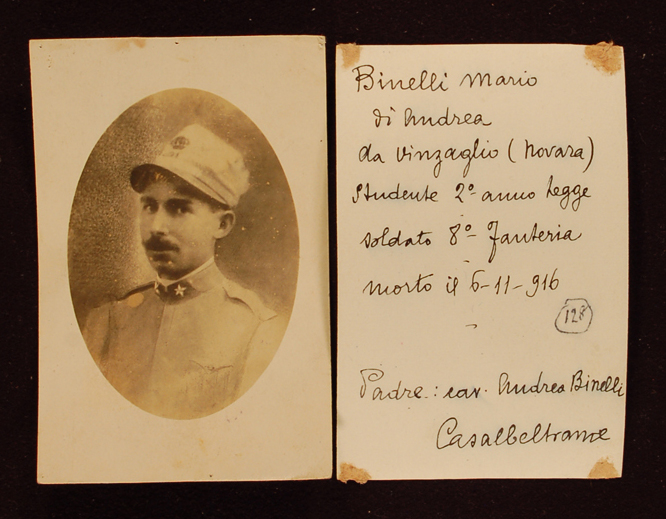 Binelli Mario
di Andrea
da Vinzaglio (Novara)
Studente 2º anno Legge
soldato 8º Fanteria
morto il 6-11-916
128
Padre: cav. Andrea Binelli
Casalbeltrame